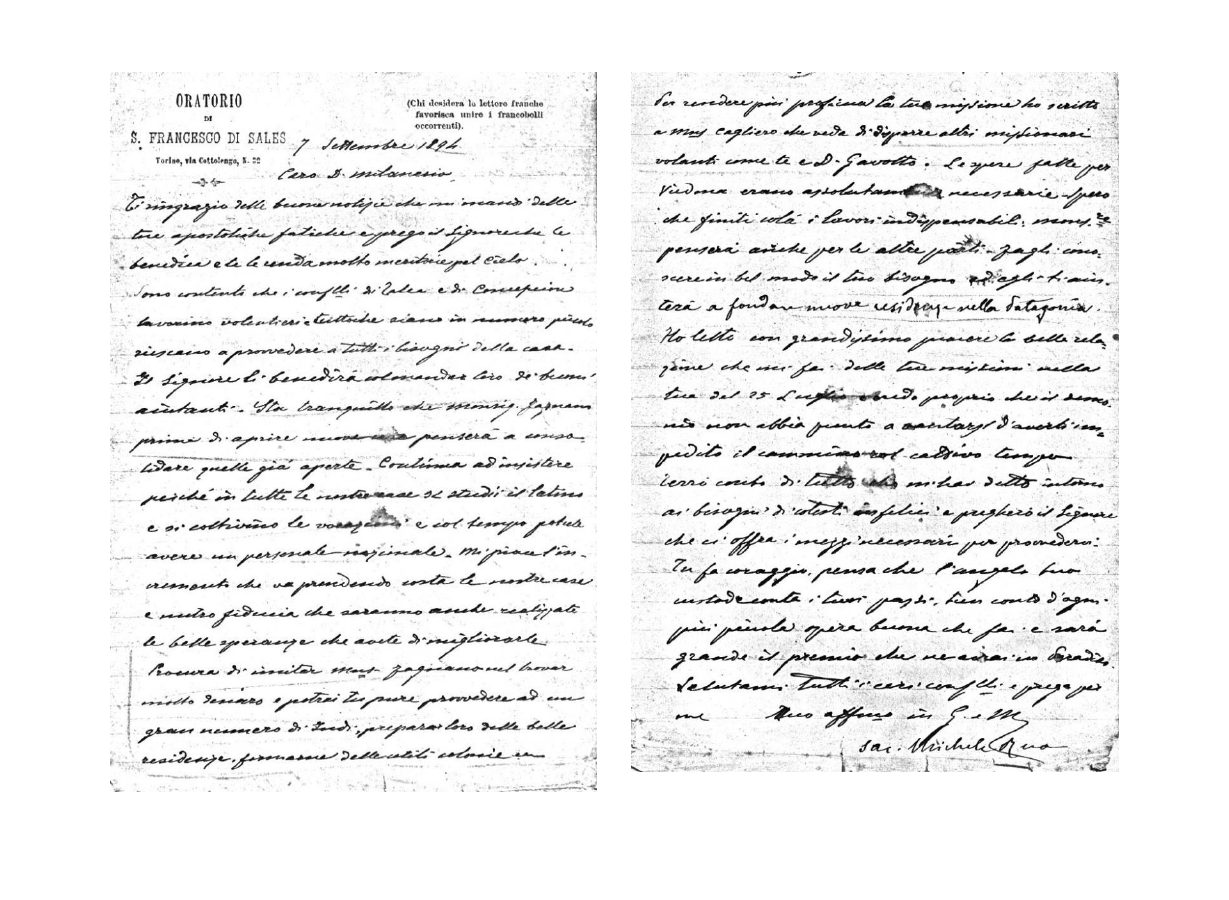 ORATORIO
DI
S. FRANCESCO DI SALES
Torino, via Cottolengo, N. 32
(Chi desidera le lettere franche
favorisca unire i francobolli
occorrenti).
7 Settembre 1894
Caro D. Milanesio,
Ti ringrazio delle buone notizie che mi mandi delle
tue apostoliche fatiche e prego il Signore che le
benedica e te le renda molto meritorie pel Cielo.
Sono contento che i conflli di Talca e di Concepcion
lavorino volentieri e tuttoché siano in numero piccolo
riescano a provvedere a tutti i bisogni della casa.
Il Signore li benedirà col mandar loro dei buoni
aiutanti. Sta tranquillo che Monsig. Fagnano
prima di aprire nuove case penserà a conso
lidare quelle già aperte. Continua ad insistere
perché in tutte le nostre case si studii il latino
e si coltivino le vocazioni e col tempo potrete
avere un personale nazionale. Mi piace l'in-
cremento che va prendendo costà le nostre case
e nutro fiducia che saranno anche realizzate
le belle speranze che avete di migliorarle
Procura di imitar Mons. Fagnano nel trovar
molto denaro e potrai tu pure provvedere ad un
gran numero di Indi, preparar loro delle belle
residenze, formarne delle utili colonie
Per rendere più proficua la tua missione ho scritto
a Mons Cagliero che veda di disporre altri missionari
volanti come te e D. Gavotto. Le spese fatte per
Viedma erano assolutamente necessarie. Spero
che finiti colà i lavori indispensabili, Mons.re
penserà anche per le altre parti. Fagli cono-
scere in bel modo il tuo bisogno ed egli ti aiu-
terà a fondar nuove residenze nella Patagonia.
Ho letto con grandissimo piacere la bella rela-
zione che mi fai delle tue missioni nella
tua del 25 Luglio e credo proprio che il demo-
nio non abbia punto a vantarsi d'averti im-
pedito il cammino col cattivo tempo
Terrò conto di tutto che mi hai detto intorno
ai bisogni di cotesti infelici e pregherò il Signore
che ci offra i mezzi necessari per provvedervi.
Tu fa coraggio, pensa che l'angelo tuo
custode conta i tuoi passi, tien conto d'ogni
più piccola opera buona che fai e sarà
grande il premio che ne avrai in Paradiso
Salutami tutti i cari confлli e prega per
me Tuo affmo in G. e M.
Sac. Michele Rua